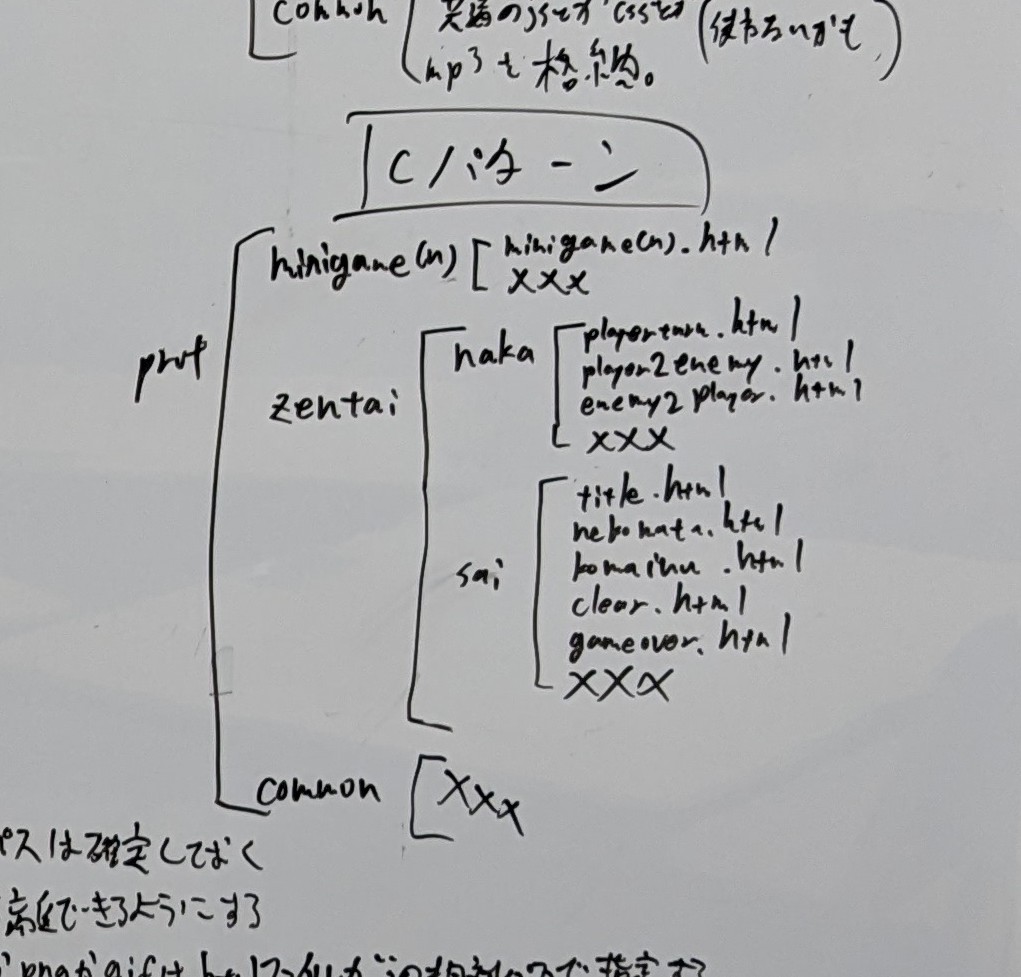 common 共通のjsとかcssとか (使わないかも)
mp3を格納。
Cパターン
minigame(n) minigame(n).html
xxx
prot
zentai
naka
playerturn.html
player2enemy.html
enemy2player.html
xxx
sai
title.html
nekomata.html
komainu.html
clear.html
gameover.html
xxx
common xxx
パスは確定しておく
できるようにする
pngかgifは
指定する